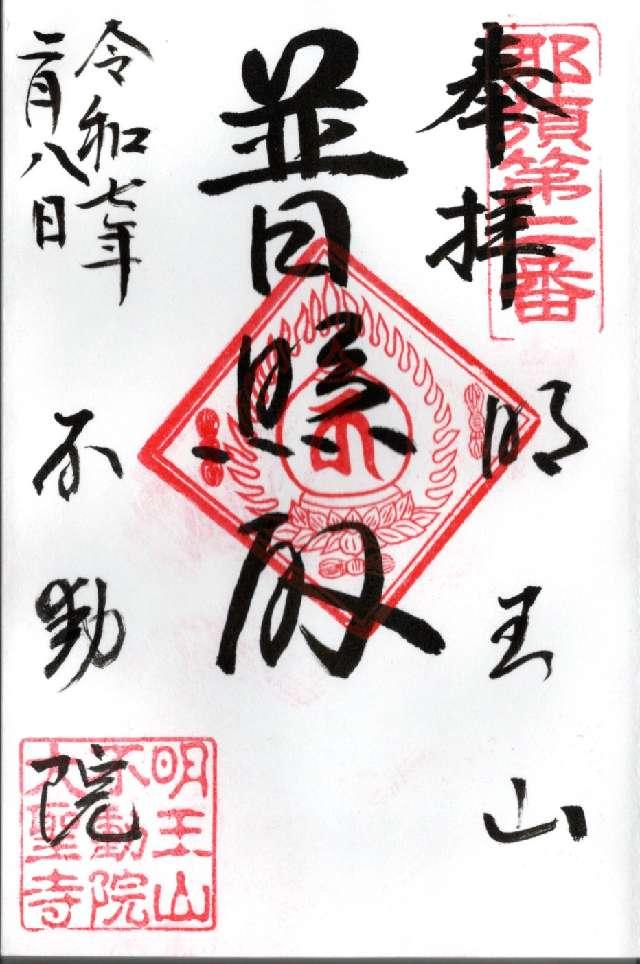 那須第二番
奉拝
明王山
普
令和七年
二月八日
不動院
明王山
不動院
大聖寺